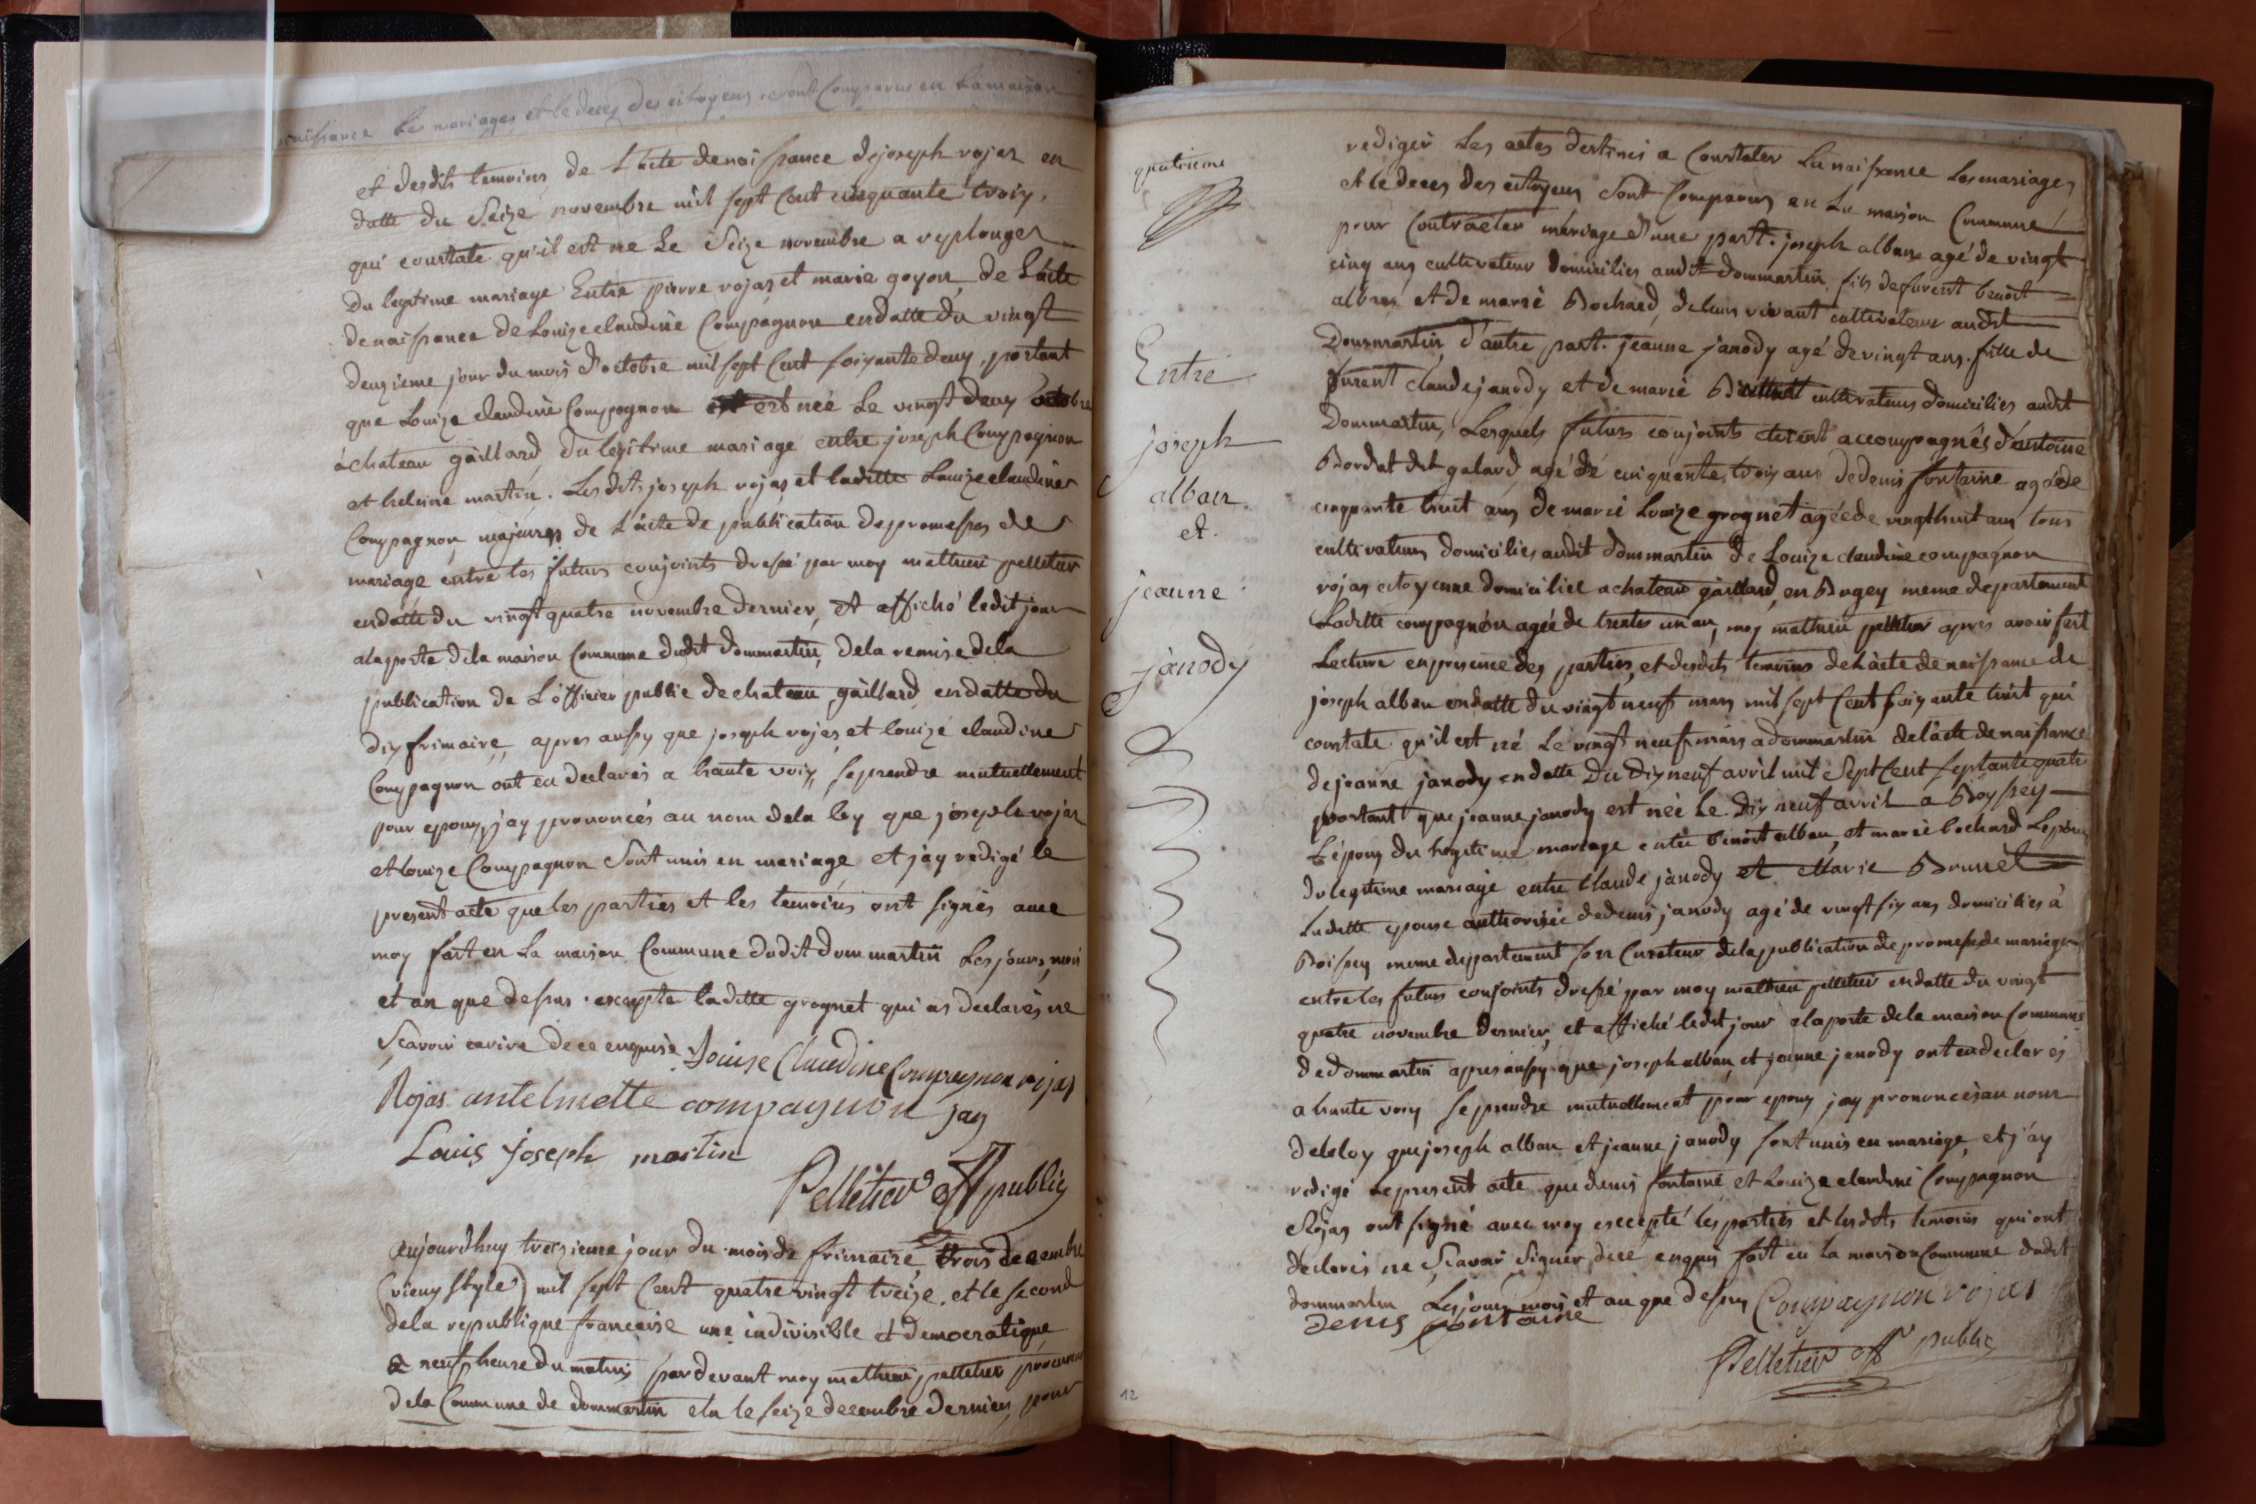 naissance Les mariages et le deces des citoyens sont Comparus en La maison
et desdits temoins de L'acte denaissance dejoseph rojas en
datte du Seize novembre mil sept Cent cinquante troix,
qui constate qu'il est ne Le Seize novembre a replonges
du legitime mariage Entre pierre rojas et marie goyon, de L'acte
denaissance deLouize claudine Compagnon endatte du vingt
deuxieme jour du mois d'octobre mil sept Cent soixante deux, portant
que Louize claudine Compagnon est née Le vingt deux octobre
à chateau gaillard du legitime mariage entre joseph Compagnon
et heleine martin. Lesdits joseph rojas et laditte Louize claudine
Compagnon majeures de L'acte de publication depromesses de
mariage entre les futurs conjoints dressé par moy mathieu pelletier
endatte du vingt quatre novembre dernier, et affiché ledit jour
alaporte dela maison Commune dudit dommartin, dela remise dela
publication de L'officier public dechateau gaillard, endatte du
dix frimaire, apres aussy que joseph rojas et louize claudine
Compagnon ont eu declarés a haute voix, se prendre mutuellement
pour epoux, j'ay prononcés au nom dela loy que joseph rojas
et louize Compagnon Sont unis en mariage et j'ay redigé le
present acte que les parties et les temoins ont signés avec
moy fait en La maison Commune dudit dommartin Les jours, mois
et an que dessus. excepte laditte grognet qui as declarés ne
Scavoir ecrire de ce enquise. Louise Claudine Compagnon rojas
Rojas antelmette compagnon jay
Louis joseph martin
Pelletier off public
aujourdhuy treizieme jour du mois de frimaire, trois decembre
(vieux style) mil sept Cent quatre vingt treize, et le second
dela republique francaise une indivisible et democratique
a neuf heure du matin, pardevant moy mathieu pelletier procureur
dela Commune de dommartin elu le seize decembre dernier, pour
quatrieme
Entre
joseph
alban
et
jeanne
janody
redigér Les actes destinés a Constater La naissance Les mariages
et le deces des citoyens Sont Comparus en La maison Commune
pour Contracter mariage d'une part. joseph alban agé de vingt
cinq ans cultivateur domiciliés audit dommartin, fils defurent benoit
alban et de marie Bochard, deleurs vivant cultivateur audit
Dommartin, d'autre part. jeanne janody agé de vingt ans. fille de
furent claude janody et de marie cultivateurs domiciliés audit
Dommartin, Lesquels futurs conjoints etoient accompagnés d'antoine
Bordat dit galard, agé de cinquante trois ans de denis fontaine agé de
cinquante huit ans de marie Louize grognet agée de vingt huit ans tous
cultivateurs domiciliés audit dommartin de Louize claudine compagnon
rojas citoyenne domiciliée a chateau gaillard, en Bugey meme departement
Laditte compagnon agée de trente un an, moy mathieu pelletier apres avoir fait
Lecture enpresence des parties, et desdits temoins de L'acte de naissance de
joseph alban endatte du vingt neuf mars mil sept Cent soixante huit qui
constate qu'il est né Le vingt neuf mars a dommartin de L'acte de naissance
dejeanne janody endatte du dix neuf avril mil Sept Cent septante quatre
portant que jeanne janody est née Le dix neuf avril a Boissey
L'époux du legitime mariage entre benoit alban, et marie bochard L'epouse
du legitime mariage entre Claude janody et Marie Brunet
Laditte epouse authorisée dedenis janody agé de vingt six ans domiciliés à
Boissey meme departement son Curateur dela publication de promesse de mariage
entre les futurs conjoints dressé par moy mathieu pelletier endatte du vingt
quatre novembre dernier, et affiché ledit jour a laporte dela maison Commune
de dommartin apres aussy que joseph alban, et jeanne janody ont eu declarés
a haute voix se prendre mutuellement pour epoux jay prononcés au nom
dela loy que joseph alban et jeanne janody sont unis en mariage, et j'ay
redigé Le present acte que denis fontaine et Louize claudine Compagnon
Rojas ont signé avec moy excepté les parties et lesdits temoins qui ont
declarés ne Scavoir Signer, de ce enquis fait en La maison Commune dudit
dommartin Les jours, mois, et an que dessus Compagnon rojas
denis fontaine
Pelletier off public
12